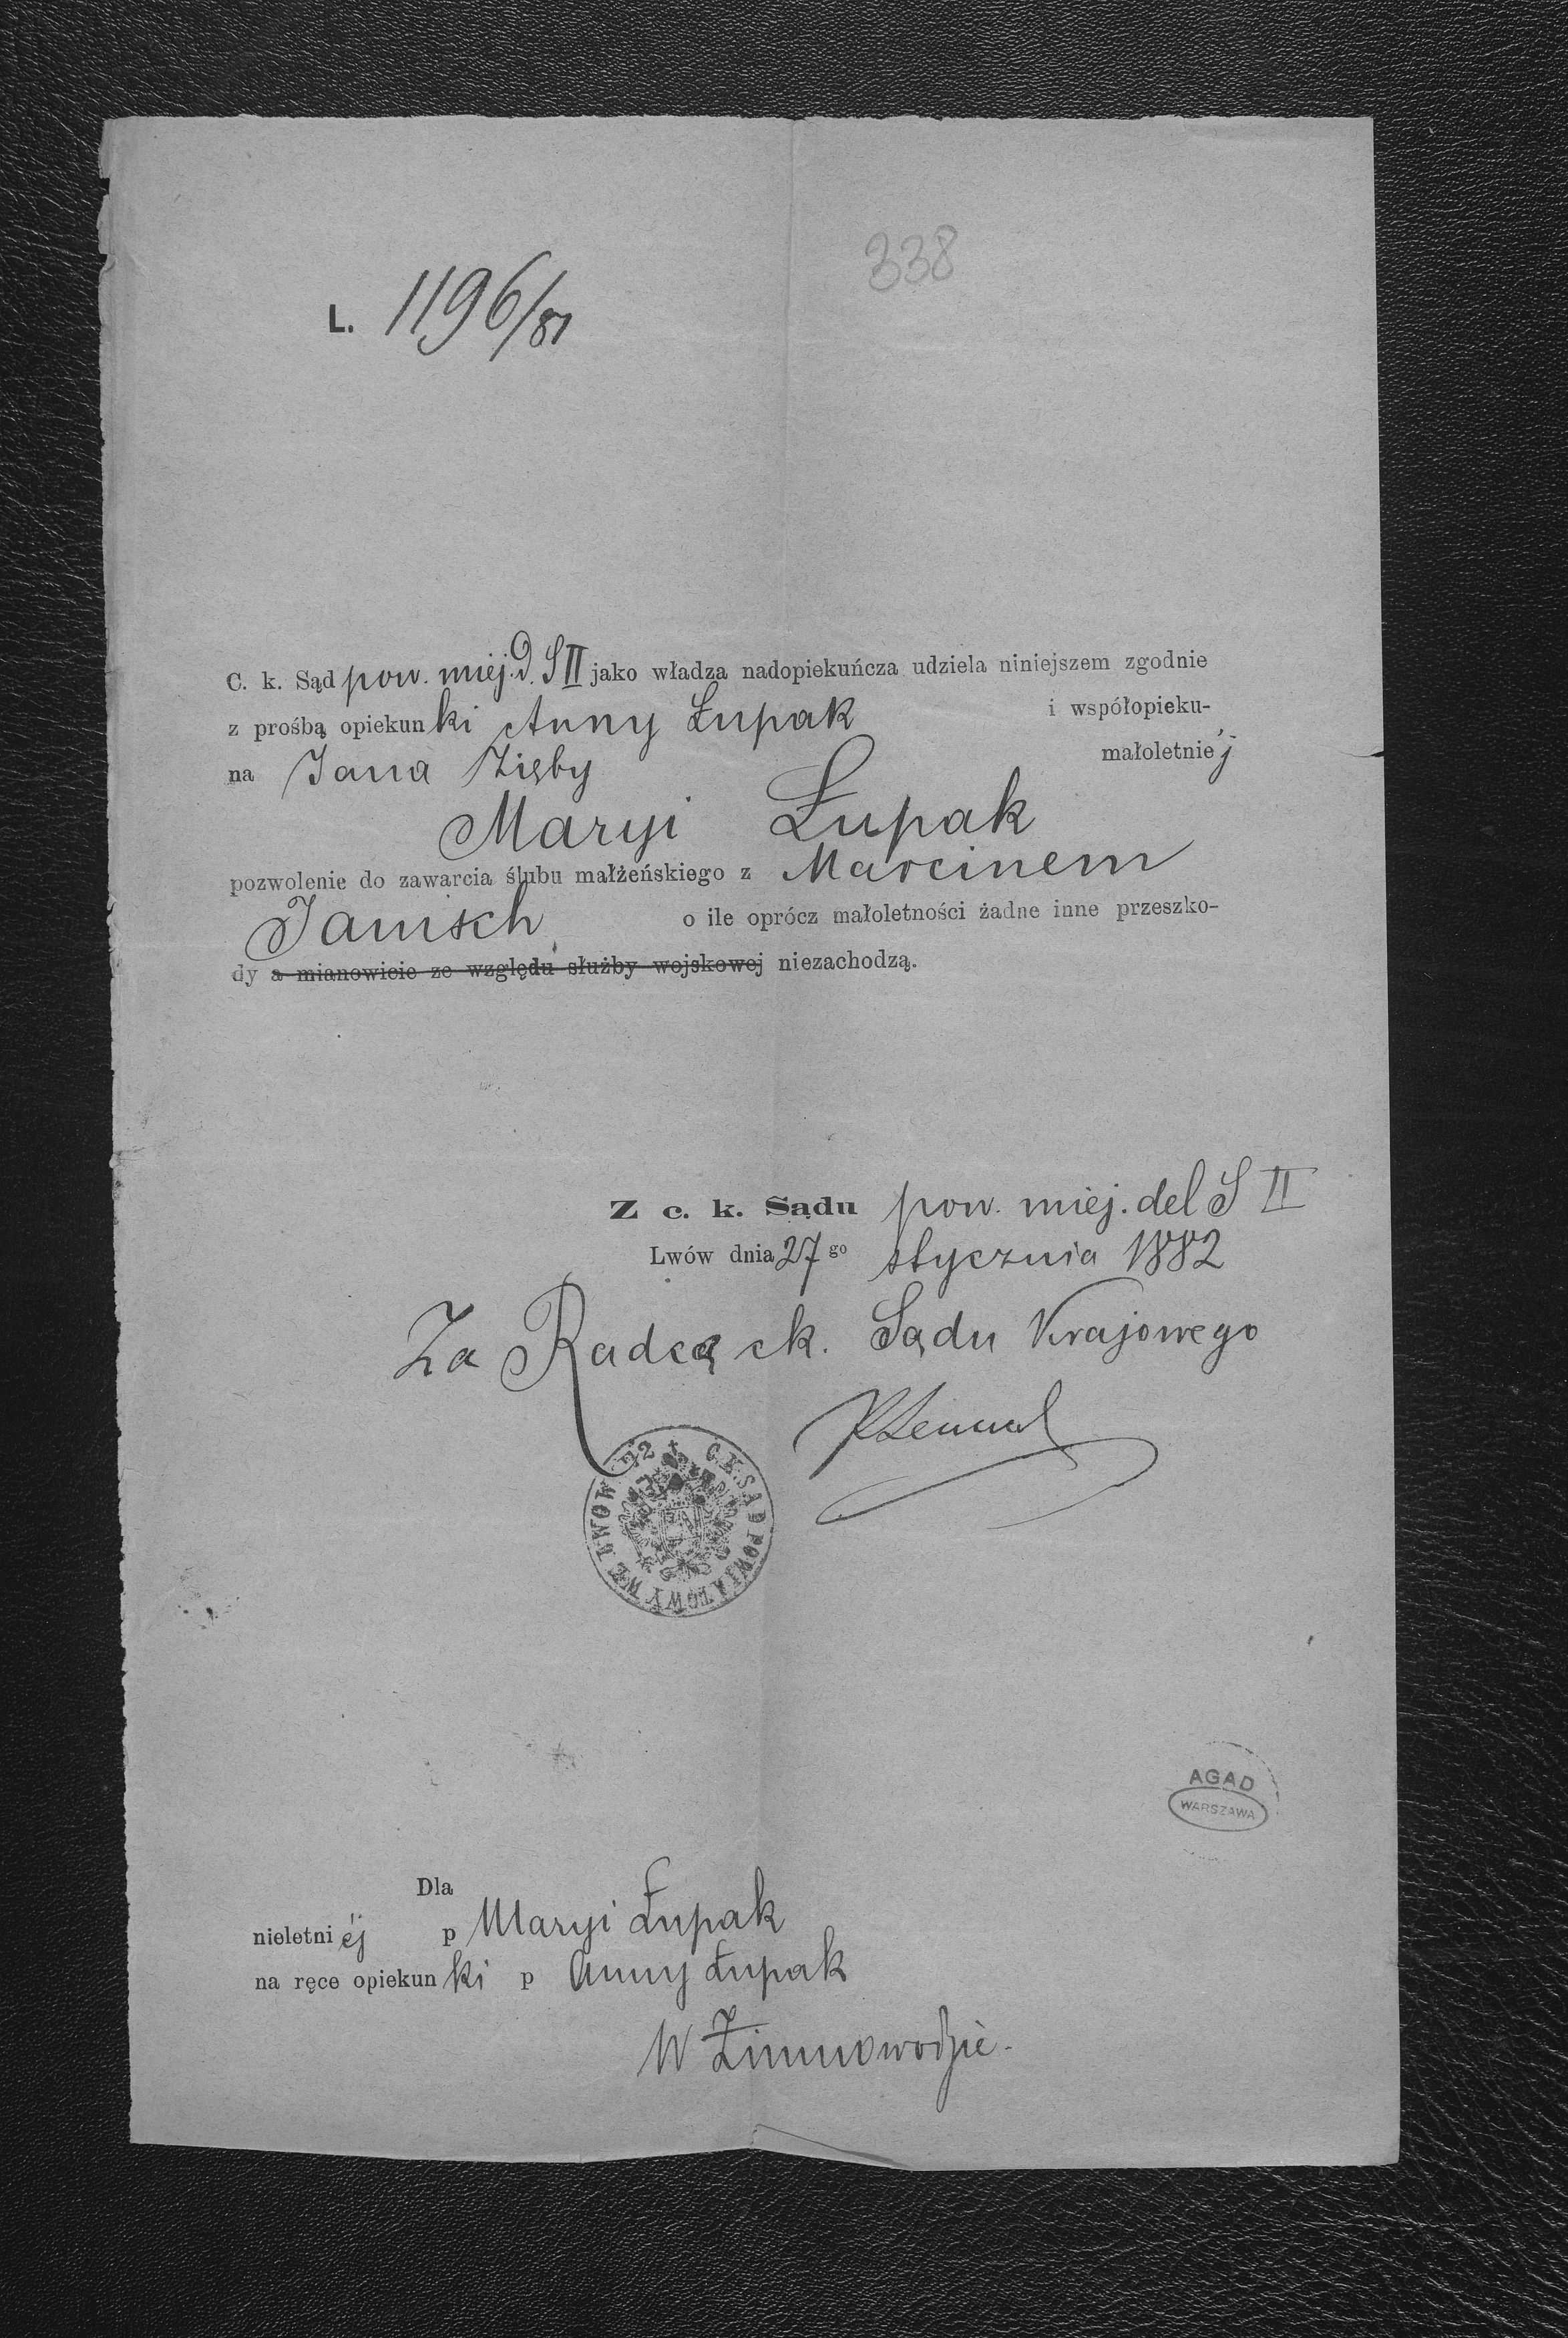 338
L. 1196/81
C. k. Sąd pow. miej. d. S II jako władza nadopiekuńcza udziela niniejszem zgodnie
z prośbą opiekunki Anny Łupak i współopieku-
na Jana Zięby małoletniéj
Maryi Łupak
pozwolenie do zawarcia ślubu małżeńskiego z Marcinem
Janisch o ile oprócz małoletności żadne inne przeszko-
dy a mianowicie ze względu służby wojskowej niezachodzą.
Z c. k. Sądu pow. miej. del S II
Lwów dnia 27go stycznia 1882
Za Radcę ck. Sądu Krajowego
C. K. SĄD POWIATOWY WE LWOWIE
AGAD
WARSZAWA
Dla
nieletniéj p Maryi Łupak
na ręce opiekunki p Anny Łupak
W Zimnowodzie.